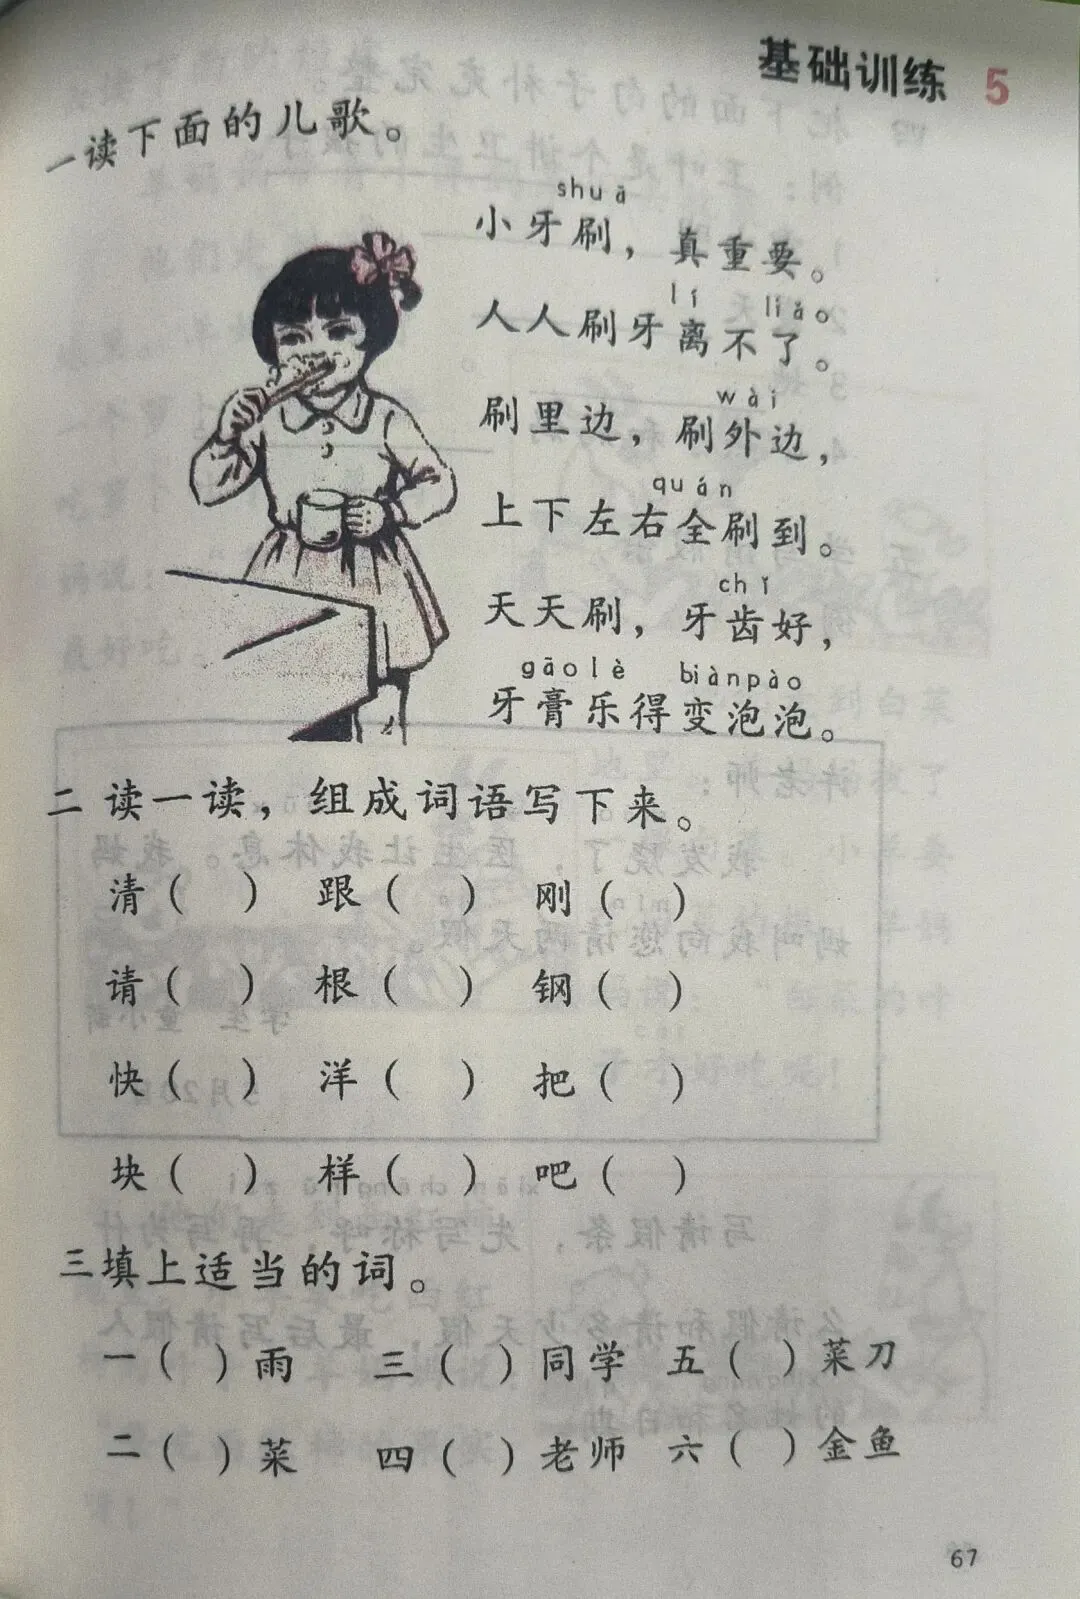 基础训练 5
一 读下面的儿歌。
shuā
小牙刷，真重要。
lí liǎo
人人刷牙离不了。
wài
刷里边，刷外边，
quán
上下左右全刷到。
chǐ
天天刷，牙齿好，
gāolè biànpào
牙膏乐得变泡泡。
二 读一读，组成词语写下来。
清（ ） 跟（ ） 刚（ ）
请（ ） 根（ ） 钢（ ）
快（ ） 洋（ ） 把（ ）
块（ ） 样（ ） 吧（ ）
三 填上适当的词。
一（ ）雨 三（ ）同学 五（ ）菜刀
二（ ）菜 四（ ）老师 六（ ）金鱼
67